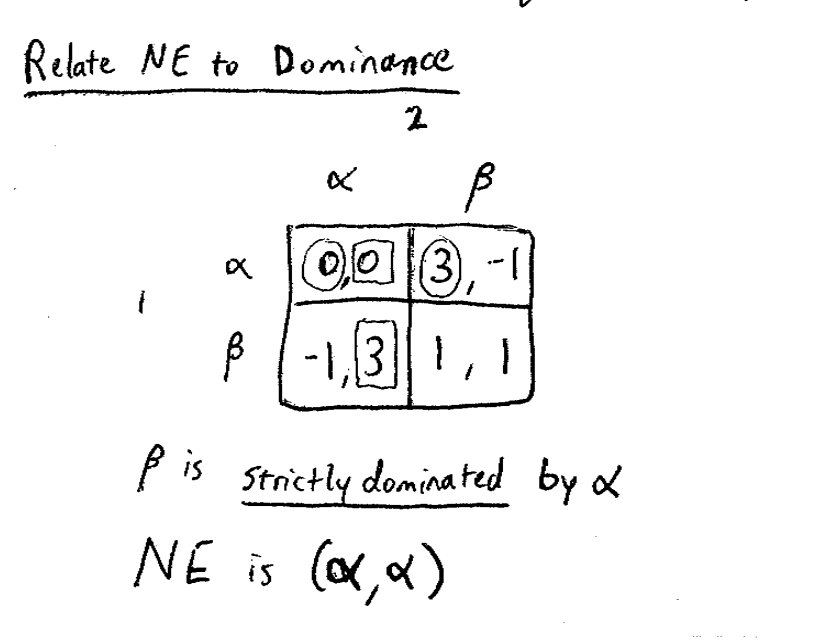 Relate NE to Dominance
2
α β
α 0,0 3,-1
1
β -1,3 1,1
β is strictly dominated by α
NE is (α,α)